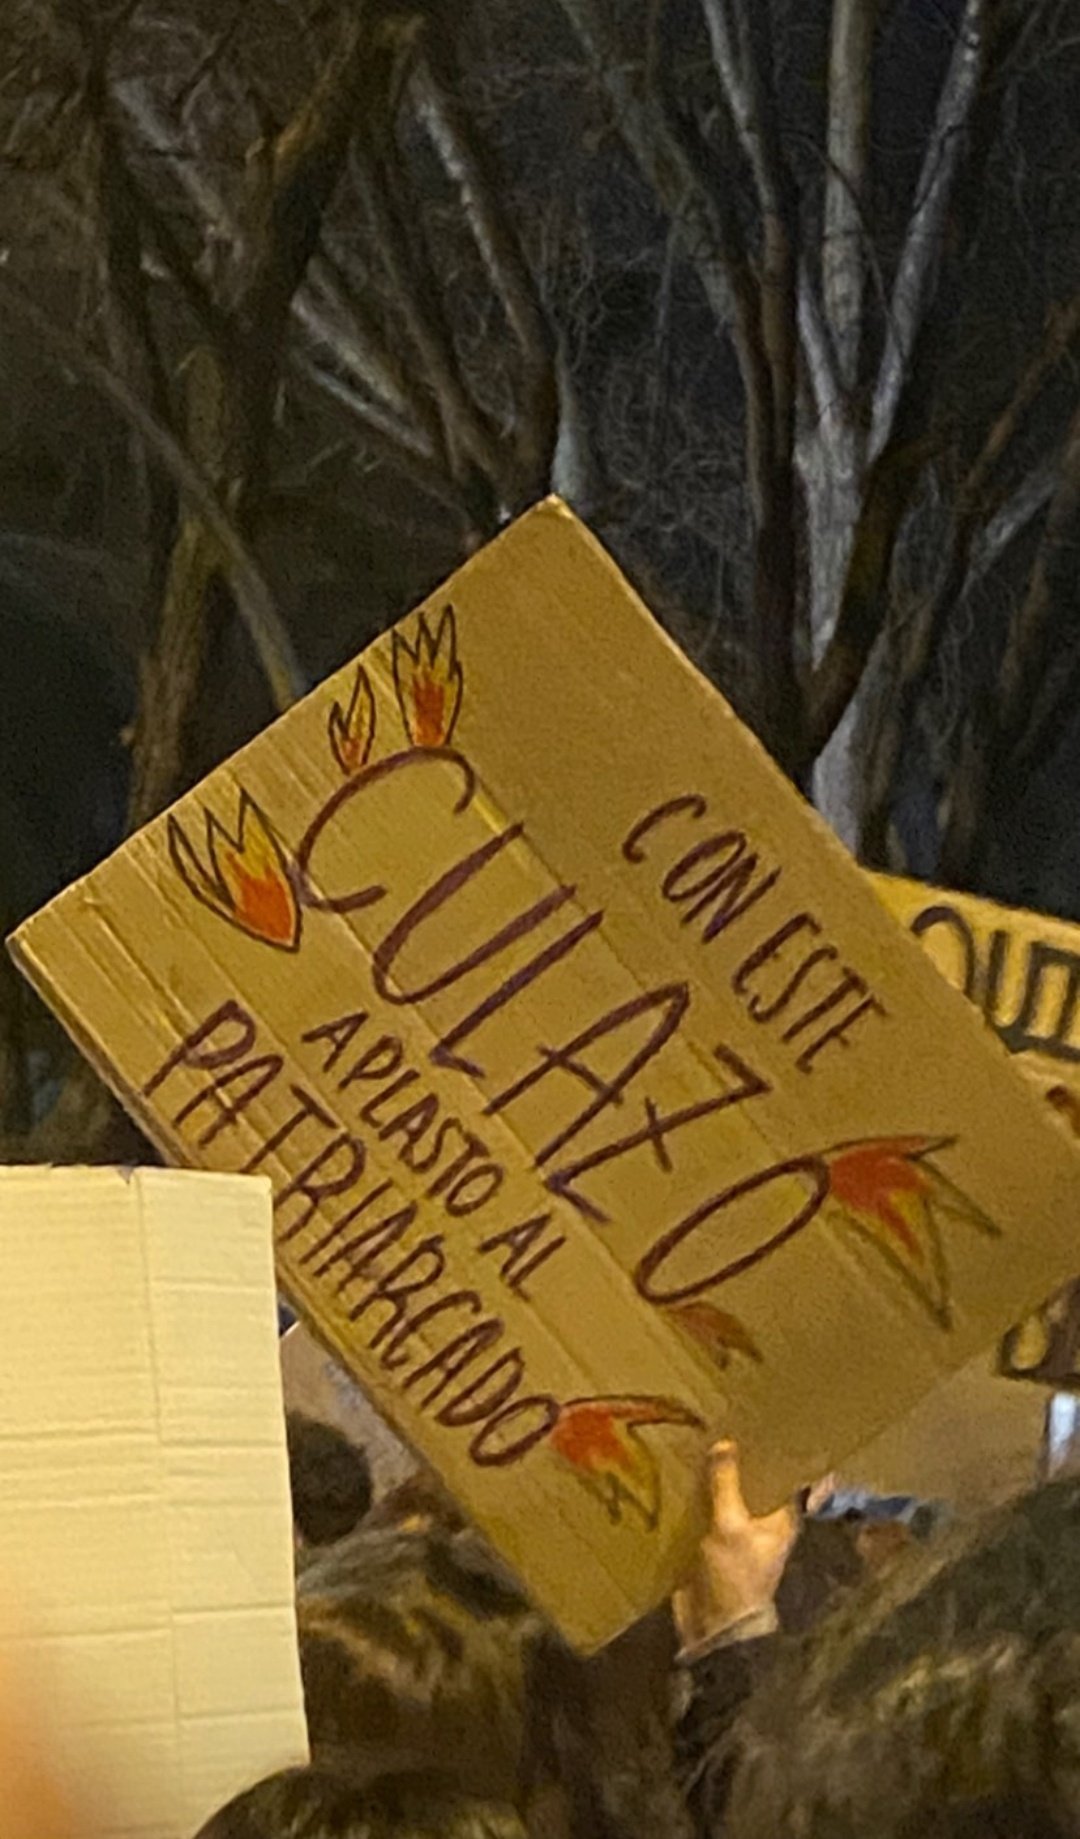 CON ESTE
CULAZO
APLASTO AL
PATRIARCADO